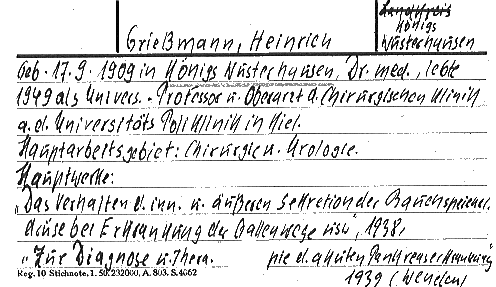 Landkreis
Königs
Wusterhausen
Grießmann, Heinrich
Geb. 17.9.1909 in Königs Wusterhausen, Dr. med., lebte
1949 als Univers.-Professor u. Oberarzt d. Chirurgischen Klinik
a. d. Universitäts Poliklinik in Kiel.
Hauptarbeitsgebiet: Chirurgie u. Urologie.
Hauptwerke:
"Das Verhalten d. inn. u. äußeren Sekretion der Bauchspeichel-
drüse bei Erkrankung der Gallenwege usw", 1938,
"Zur Diagnose u. Thera- pie d. akuten Pankreaserkrankung"
Reg. 10 Stichnote, 1. 50. 232000, A. 803. S. 4062
1939 (Wenden)